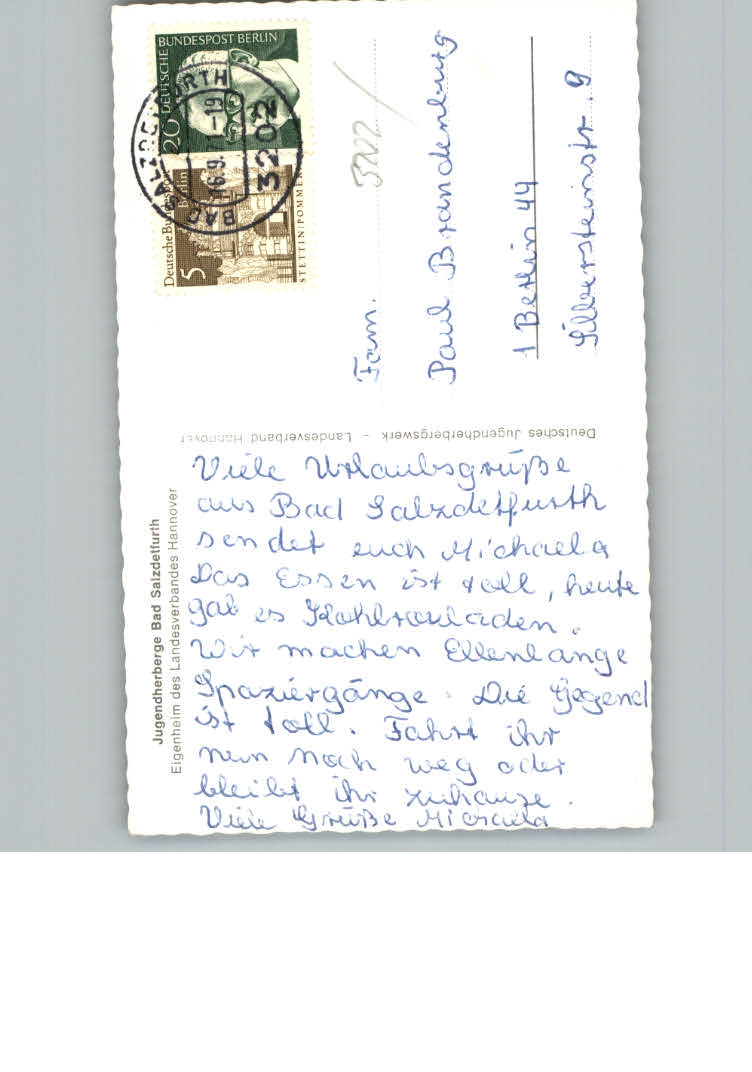 Jugendherberge Bad Salzdetfurth
Eigenheim des Landesverbandes Hannover
Viele Urlaubsgrüße
aus Bad Salzdetfurth
sendet euch Michaela
Das Essen ist toll, heute
gab es Kohlrouladen.
Wir machen Ellenlange
Spaziergänge. Die Gegend
ist toll. Fahrt ihr
nun noch weg oder
bleibt ihr zuhause.
Viele Grüße Michaela
Deutsches Jugendherbergswerk - Landesverband Hannover
DEUTSCHE BUNDESPOST BERLIN
20
Deutsche Bundespost
Berlin
5
STETTIN/POMMERN
BAD SALZDETFURTH
16.9.71-19
3202
3202
Fam.
Paul Brandenburg
1 Berlin 44
Silbersteinstr. 9